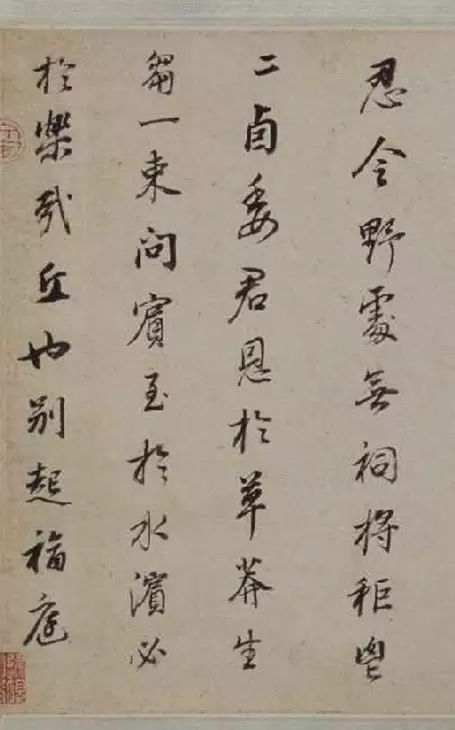 忍令野處無祠將秬鬯
二卣委君恩於草莽生
芻一束問賓至於水濱必
於樂哉丘也別起福庭